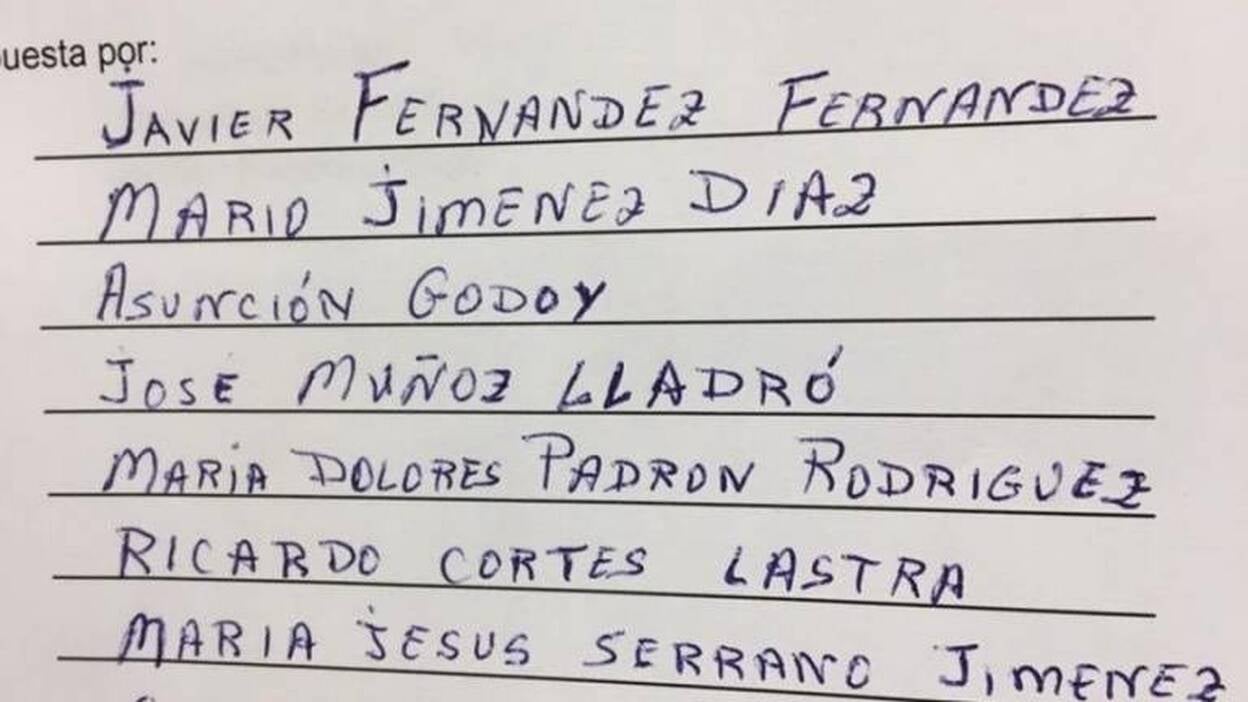 uesta por:
JAVIER FERNANDEZ FERNANDEZ
MARIO JiMENEZ DIAZ
ASUNCIÓN GODOY
JOSE MUÑOZ LLADRÓ
MARiA DOLORES PADRON RODRIGUEZ
RICARDO CORTES LASTRA
MARIA JESUS SERRANO JiMENEZ